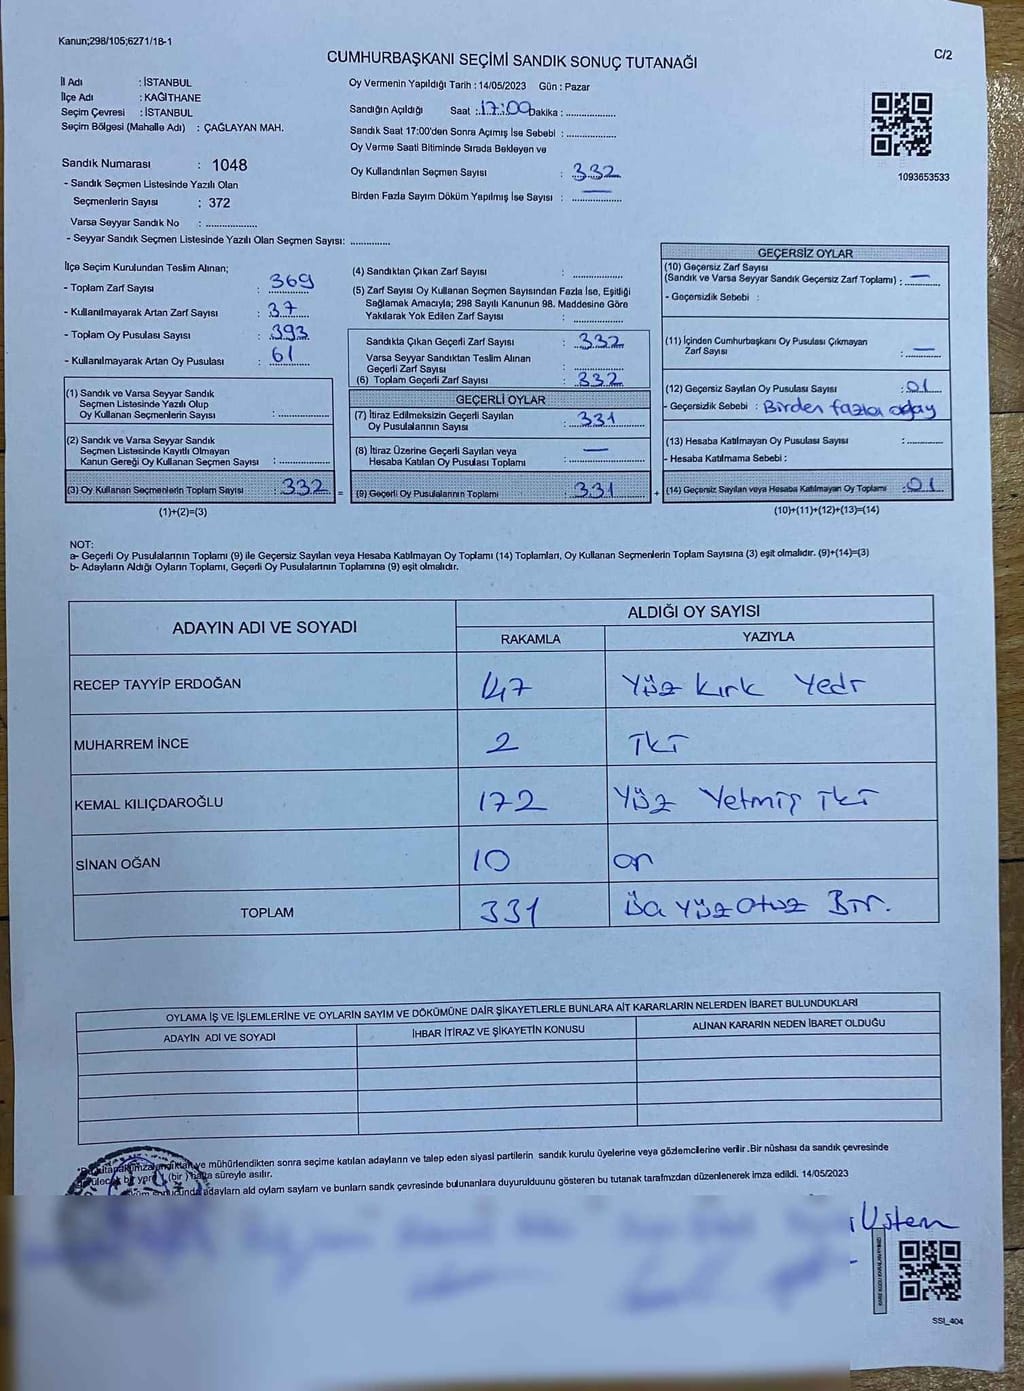 Kanun;298/105;6271/18-1
CUMHURBAŞKANI SEÇİMİ SANDIK SONUÇ TUTANAĞI
C/2
İl Adı : İSTANBUL
İlçe Adı : KAĞITHANE
Seçim Çevresi : İSTANBUL
Seçim Bölgesi (Mahalle Adı) : ÇAĞLAYAN MAH.
Oy Vermenin Yapıldığı Tarih : 14/05/2023 Gün : Pazar
Sandığın Açıldığı Saat : 17:00 Dakika : ..............
Sandık Saat 17:00'den Sonra Açımış İse Sebebi : ..............
Oy Verme Saati Bitiminde Sırada Bekleyen ve
Oy Kullandırılan Seçmen Sayısı : 332
Birden Fazla Sayım Döküm Yapılmış İse Sayısı : —
1093653533
Sandık Numarası : 1048
- Sandık Seçmen Listesinde Yazılı Olan
Seçmenlerin Sayısı : 372
Varsa Seyyar Sandık No : ..............
- Seyyar Sandık Seçmen Listesinde Yazılı Olan Seçmen Sayısı: ..............
İlçe Seçim Kurulundan Teslim Alınan;
- Toplam Zarf Sayısı : 369
- Kullanılmayarak Artan Zarf Sayısı : 37
- Toplam Oy Pusulası Sayısı : 393
- Kullanılmayarak Artan Oy Pusulası : 61
(1) Sandık ve Varsa Seyyar Sandık
Seçmen Listesinde Yazılı Olup
Oy Kullanan Seçmenlerin Sayısı : ..............
(2) Sandık ve Varsa Seyyar Sandık
Seçmen Listesinde Kayıtlı Olmayan
Kanun Gereği Oy Kullanan Seçmen Sayısı : ..............
(3) Oy Kullanan Seçmenlerin Toplam Sayısı : 332 =
(1)+(2)=(3)
(4) Sandıktan Çıkan Zarf Sayısı : ..............
(5) Zarf Sayısı Oy Kullanan Seçmen Sayısından Fazla İse, Eşitliği
Sağlamak Amacıyla; 298 Sayılı Kanunun 98. Maddesine Göre
Yakılarak Yok Edilen Zarf Sayısı : ..............
Sandıkta Çıkan Geçerli Zarf Sayısı : 332
Varsa Seyyar Sandıktan Teslim Alınan
Geçerli Zarf Sayısı : ..............
(6) Toplam Geçerli Zarf Sayısı : 332
GEÇERLİ OYLAR
(7) İtiraz Edilmeksizin Geçerli Sayılan
Oy Pusulalarının Sayısı : 331
(8) İtiraz Üzerine Geçerli Sayılan veya
Hesaba Katılan Oy Pusulası Toplamı : —
(9) Geçerli Oy Pusulalarının Toplamı : 331 +
GEÇERSİZ OYLAR
(10) Geçersiz Zarf Sayısı
(Sandık ve Varsa Seyyar Sandık Geçersiz Zarf Toplamı) : —
- Geçersizlik Sebebi :
(11) İçinden Cumhurbaşkanı Oy Pusulası Çıkmayan
Zarf Sayısı : —
(12) Geçersiz Sayılan Oy Pusulası Sayısı : 01
- Geçersizlik Sebebi : Birden fazla aday
(13) Hesaba Katılmayan Oy Pusulası Sayısı : ..............
- Hesaba Katılmama Sebebi :
(14) Geçersiz Sayılan veya Hesaba Katılmayan Oy Toplamı : 01
(10)+(11)+(12)+(13)=(14)
NOT:
a- Geçerli Oy Pusulalarının Toplamı (9) ile Geçersiz Sayılan veya Hesaba Katılmayan Oy Toplamı (14) Toplamları, Oy Kullanan Seçmenlerin Toplam Sayısına (3) eşit olmalıdır. (9)+(14)=(3)
b- Adayların Aldığı Oyların Toplamı, Geçerli Oy Pusulalarının Toplamına (9) eşit olmalıdır.
ADAYIN ADI VE SOYADI
ALDIĞI OY SAYISI
RAKAMLA YAZIYLA
RECEP TAYYİP ERDOĞAN 147 Yüz kırk Yedi
MUHARREM İNCE 2 iki
KEMAL KILIÇDAROĞLU 172 Yüz Yetmiş iki
SİNAN OĞAN 10 on
TOPLAM 331 Üç Yüz Otuz Bir.
OYLAMA İŞ VE İŞLEMLERİNE VE OYLARIN SAYIM VE DÖKÜMÜNE DAİR ŞİKAYETLERLE BUNLARA AİT KARARLARIN NELERDEN İBARET BULUNDUKLARI
ADAYIN ADI VE SOYADI İHBAR İTİRAZ VE ŞİKAYETİN KONUSU ALINAN KARARIN NEDEN İBARET OLDUĞU
ve mühürlendikten sonra seçime katılan adayların ve talep eden siyasi partilerin sandık kurulu üyelerine veya gözlemcilerine verilir .Bir nüshası da sandık çevresinde
(bir) hafta süreyle asılır.
adayların ald oyların sayların ve bunların sandk çevresinde bulunanlara duyurulduunu gösteren bu tutanak tarafmzdan düzenlenerek imza edildi. 14/05/2023
Üstem
SSI_404